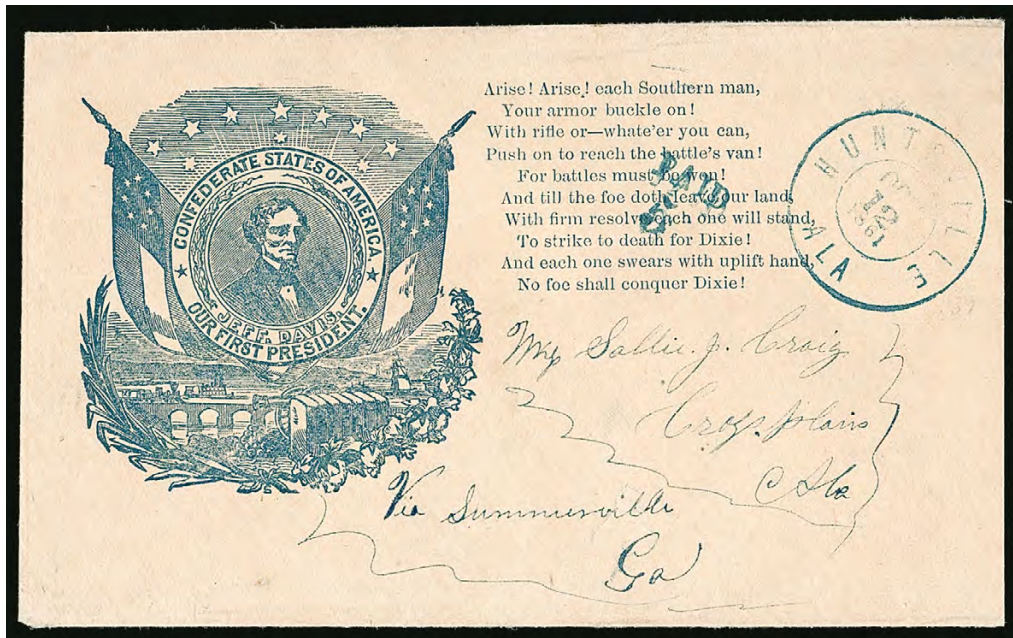 CONFEDERATE STATES OF AMERICA.
JEFF. DAVIS.
OUR FIRST PRESIDENT.
Arise! Arise! each Southern man,
Your armor buckle on!
With rifle or—whate'er you can,
Push on to reach the battle's van!
For battles must be won!
And till the foe doth leave our land,
With firm resolve each one will stand,
To strike to death for Dixie!
And each one swears with uplift hand,
No foe shall conquer Dixie!
PAID
5
HUNTSVILLE
ALA
1861
Sallie. J. Craig
Cross plains
Ala
Via Summerville
Ga